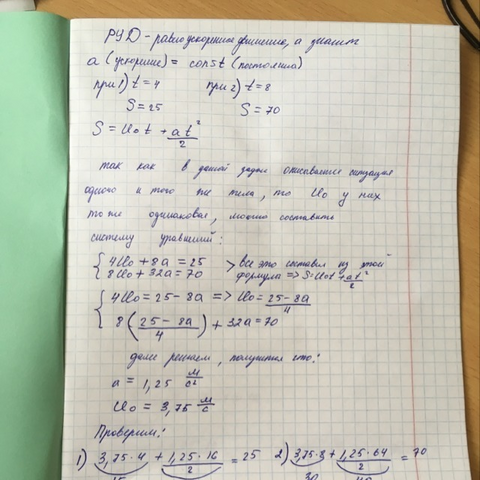 РУД - равноускоренное движение, а значит
a (ускорение) = const (постоянна)
при 1) t = 4 при 2) t = 8
S = 25 S = 70
S = U₀t + at²/2
так как в данной задаче описывается ситуация
одного и того же тела, то U₀ у них
тоже одинаковая, можно составить
систему уравнений:
{ 4U₀ + 8a = 25 > все это составил из этой
{ 8U₀ + 32a = 70 формулы => S = U₀t + at²/2
{ 4U₀ = 25 - 8a => U₀ = (25 - 8a)/4
{ 8((25 - 8a)/4) + 32a = 70
далее решаем, получится что:
a = 1,25 м/с²
U₀ = 3,75 м/с
Проверим:
1) 3,75·4 + 1,25·16/2 = 25 2) 3,75·8 + 1,25·64/2 = 70